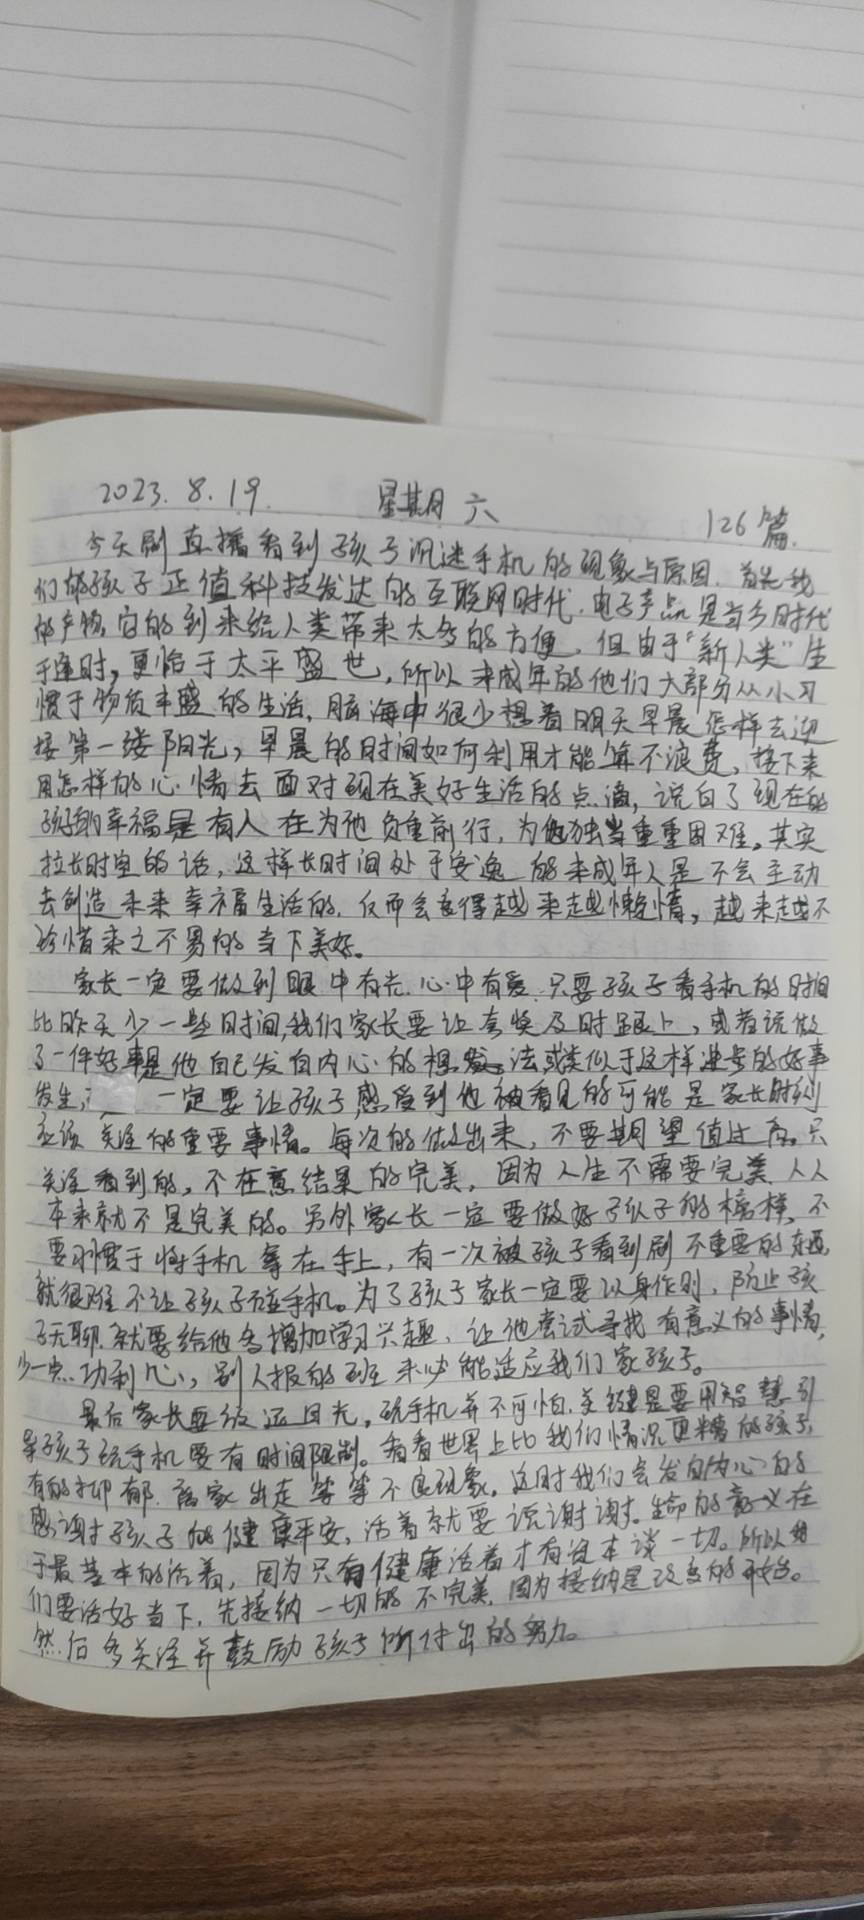 2023.8.19. 星期六 126篇.
今天刷直播看到孩子沉迷手机的现象与原因. 首先我
们的孩子正值科技发达的互联网时代. 电子产品是当今时代
的产物, 它的到来给人类带来太多的方便. 但由于“新人类”生
于逢时, 更怡于太平盛世, 所以未成年的他们大部分从小习
惯于物质丰盛的生活, 脑海中很少想着明天早晨怎样去迎
接第一缕阳光, 早晨的时间如何利用才能算不浪费, 接下来
用怎样的心情去面对现在美好生活的点滴, 说白了现在的
孩子的幸福是有人在为他负重前行, 为他独当重重困难。其实
拉长时空的话, 这样长时间处于安逸的未成年人是不会主动
去创造未来幸福生活的. 反而会变得越来越懒惰, 越来越不
珍惜来之不易的当下美好。
家长一定要做到眼中有光. 心中有爱. 只要孩子看手机的时间
比昨天少一些时间, 我们家长要让夸奖及时跟上, 或者说做
了一件好事是他自己发自内心的想法, 或类似于这样进步的好事
发生, 一定要让孩子感受到他被看见的可能是家长时刻
应该关注的重要事情。每次的做出来, 不要期望值过高。只
关注看到的, 不在意结果的完美, 因为人生不需要完美. 人人
本来就不是完美的。另外家长一定要做好孩子的榜样, 不
要习惯于将手机拿在手上, 有一次被孩子看到刷不重要的东西,
就很难不让孩子碰手机。为了孩子家长一定要以身作则, 防止孩
子无聊. 就要给他多增加学习兴趣. 让他尝试寻找有意义的事情,
少一点功利心, 别人报的班未必能适应我们家孩子。
最后家长要放远目光, 玩手机并不可怕. 关键是要用智慧引
导孩子玩手机要有时间限制。看看世界上比我们情况更糟的孩子,
有的抑郁. 离家出走等等不良现象, 这时我们会发自内心的
感谢孩子的健康平安, 活着就要说谢谢. 生命的意义在
于最基本的活着, 因为只有健康活着才有资本谈一切。所以我
们要活好当下, 先接纳一切的不完美. 因为接纳是改变的开始。
然后多关注并鼓励孩子所付出的努力。